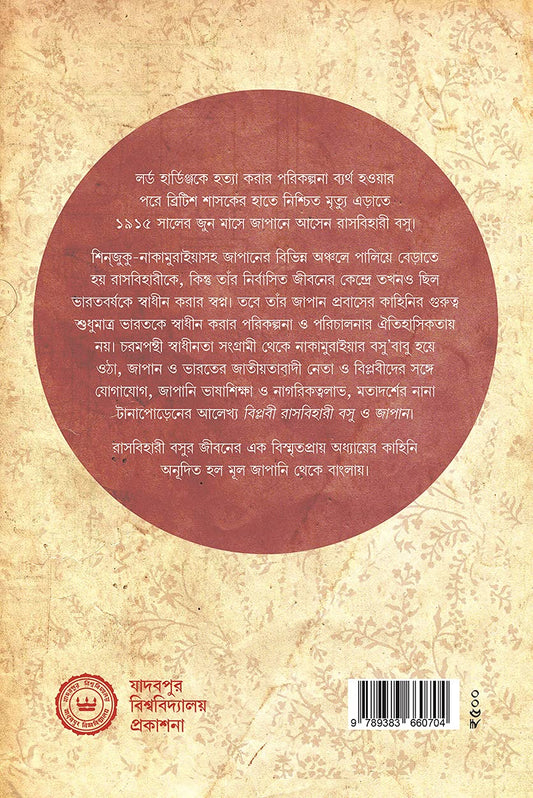 লর্ড হার্ডিঞ্জকে হত্যা করার পরিকল্পনা ব্যর্থ হওয়ার
পরে ব্রিটিশ শাসকের হাতে নিশ্চিত মৃত্যু এড়াতে
১৯১৫ সালের জুন মাসে জাপানে আসেন রাসবিহারী বসু।
শিন্‌জুকু-নাকামুরাইয়াসহ জাপানের বিভিন্ন অঞ্চলে পালিয়ে বেড়াতে
হয় রাসবিহারীকে, কিন্তু তাঁর নির্বাসিত জীবনের কেন্দ্রে তখনও ছিল
ভারতবর্ষকে স্বাধীন করার স্বপ্ন। তবে তাঁর জাপান প্রবাসের কাহিনির গুরুত্ব
শুধুমাত্র ভারতকে স্বাধীন করার পরিকল্পনা ও পরিচালনার ঐতিহাসিকতায়
নয়। চরমপন্থী স্বাধীনতা সংগ্রামী থেকে নাকামুরাইয়ার বসু'বাবু হয়ে
ওঠা, জাপান ও ভারতের জাতীয়তাবাদী নেতা ও বিপ্লবীদের সঙ্গে
যোগাযোগ, জাপানি ভাষাশিক্ষা ও নাগরিকত্বলাভ, মতাদর্শের নানা
টানাপোড়েনের আলেখ্য বিপ্লবী রাসবিহারী বসু ও জাপান।
রাসবিহারী বসুর জীবনের এক বিস্মৃতপ্রায় অধ্যায়ের কাহিনি
অনূদিত হল মূল জাপানি থেকে বাংলায়।
যাদবপুর
বিশ্ববিদ্যালয়
প্রকাশনা
9 789383 660704
₹৫০০